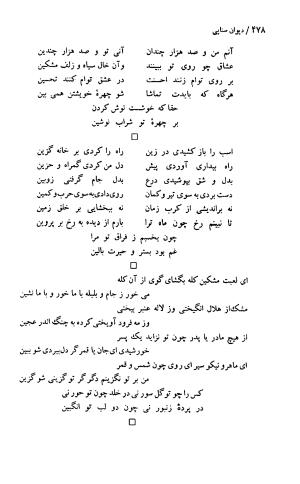 ۴۷۸ / دیوان سنایی
آنم من و صد هزار چندان    آنی تو و صد هزار چندین
عشاق چو روی تو ببینند    و آن خال سیاه و زلف مشکین
بر روی توام زنند احسنت    در عشق توام کنند تحسین
هرگاه که بایدت تماشا    شو چهرهٔ خویشتن همی بین
حقا که خوشست نوش کردن
بر چهرهٔ تو شراب نوشین
اسب را باز کشیدی در زین    راه را کردی بر خانه گزین
راه بیداری آوردی پیش    دل من کردی گمراه و حزین
بدل و شق بپوشیدی درع    بدل جام گرفتی زوبین
دست بردی به سوی تیر و کمان    روی دادی به سوی حرب و کمین
نه براندیشی از کرب زمان    نه ببخشایی بر خلق زمین
تا نبینم رخ چون ماه ترا    بارم از دیده به رخ بر پروین
چون بخسبم ز فراق تو مرا
غم بود بستر و حیرت بالین
ای لعبت مشکین کله بگشای گوی از آن کله
می خور ز جام و بلبله با ما خور و با ما نشین
مشک از هلال انگیختی وز لاله عنبر بیختی
وز مه فرود آویختی کرده به چنگ اندر عجین
از هیچ مادر یا پدر چون تو نزاید یک پسر
خورشیدی ای جان یا قمر گر دل‌بردی شو ببین
ای ماهرو نیکو سیر ای روی چون شمس و قمر
من بر تو نگزینم دگر گر تو گزینی شو گزین
کس را چو تو گل سور نی در خلد چون تو حور نی
در پردهٔ زنبور نی چون دو لب تو انگبین